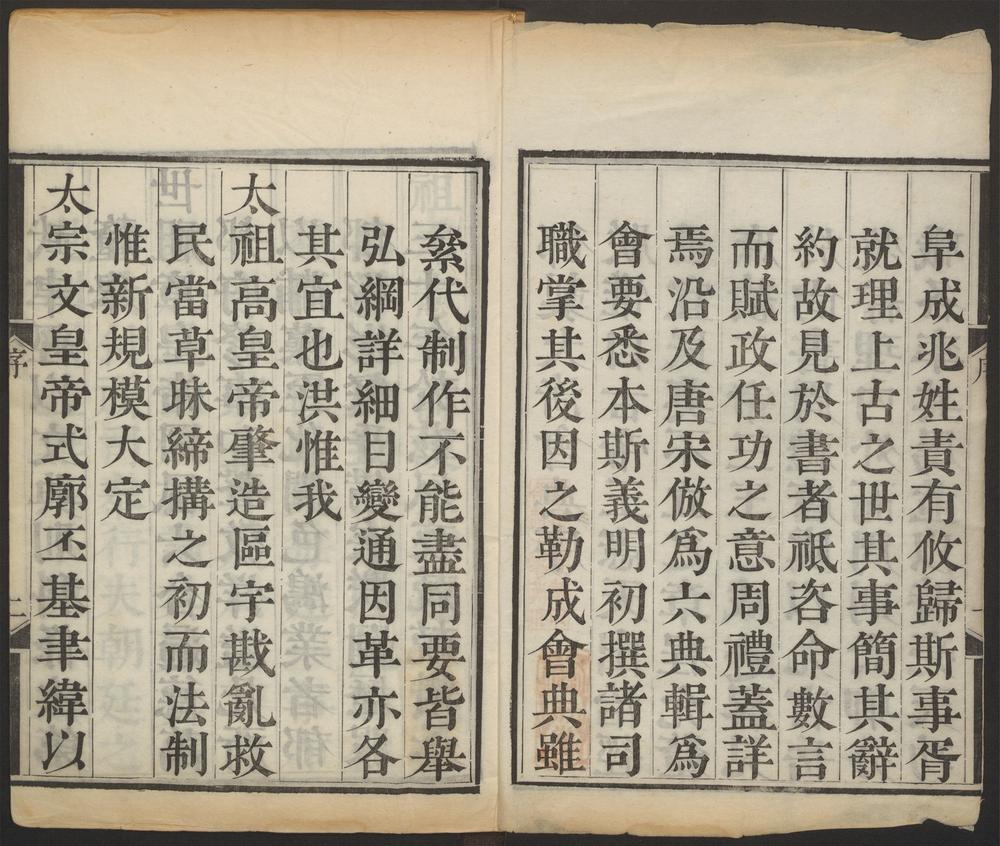 阜成兆姓責有攸歸斯事胥
就理上古之世其事簡其辭
約故見於書者祗咨命數言
而賦政任功之意周禮蓋詳
焉沿及唐宋倣爲六典輯爲
會要悉本斯義明初撰諸司
職掌其後因之勒成會典雖
絫代制作不能盡同要皆舉
弘綱詳細目變通因革亦各
其宜也洪惟我
太祖高皇帝肇造區宇戡亂救
民當草昧締搆之初而法制
惟新規模大定
太宗文皇帝式廓丕基聿緯以
序
二